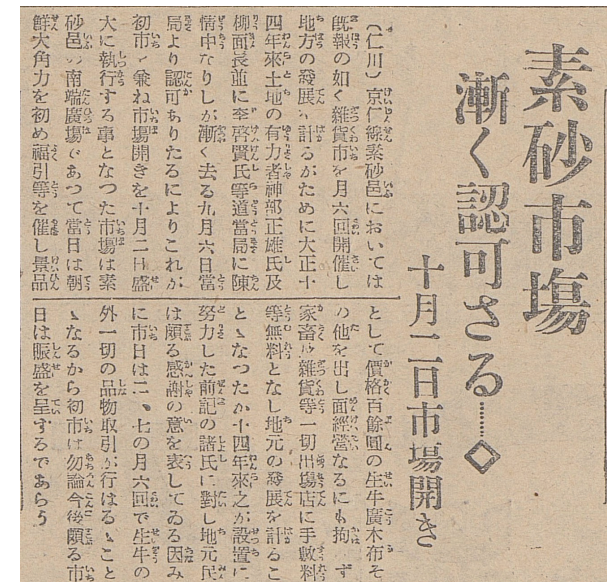 素砂市塲
漸く認可さる……◇
十月二日市塲開き
(仁川)京仁線素砂邑においては
既報の如く雜貨市を月六回開催し
地方の發展を計るがために大正十
四年來土地の有力者神部正雄氏及
柳面長並に李啓賢氏等道當局に陳
情中なりしが漸く去る九月六日當
局より認可ありたるによりこれが
初市を兼ね市塲開きを十月二日盛
大に執行する事となつた市塲は素
砂邑の南端廣塲であつて當日は朝
鮮大角力を初め福引等を催し景品
として價格百餘圓の生牛廣木布そ
の他を出し面經營なるにも拘らず
家畜及雜貨等一切出塲店に手數料
等無料となし地元の發展を計るこ
とゝなつたが十四年來之が設置に
努力した前記の諸氏に對し地元民
は頗る感謝の意を表してゐる因み
に市日は二、七の月六回で生牛の
外一切の品物取引が行はるゝこと
ゝなるから初市は勿論今後頗る市
日は賑盛を呈するであらう